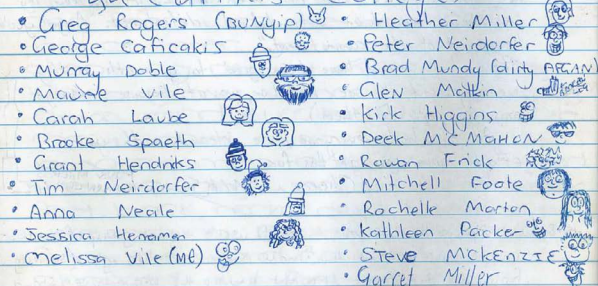 Greg Rogers (BUNyip)
George Caficakis
Murray Doble
Maurie Vile
Carah Laube
Brooke Spaeth
Grant Hendriks
Tim Neirdorfer
Anna Neale
Jessica Henaman
Melissa Vile (ME)
Heather Miller
Peter Neirdorfer
Brad Mundy (dirty AFGAN)
Glen Matkin
Kirk Higgins
Deek McMAHON
Rowan Frick
Mitchell Foote
Rochelle Marton
Kathleen Packer
STEVE MCKENZIE
Garret Miller